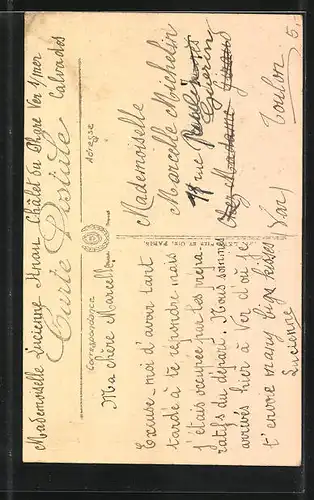 Mademoiselle Lucienne Châlet du Phare Ver s/mer
Calvados
Carte Postale
Correspondance
Adresse
Ma chère Marcelle,
Excuse-moi d'avoir tant
tardé à te répondre mais
j'étais occupée par les prépa-
ratifs du départ. Nous sommes
arrivés hier à Ver d'où je
t'envoie many bigs kises
Lucienne
Mademoiselle
Marcelle Michelin
11 rue
Chez Madame
Toulon
Var)
5.